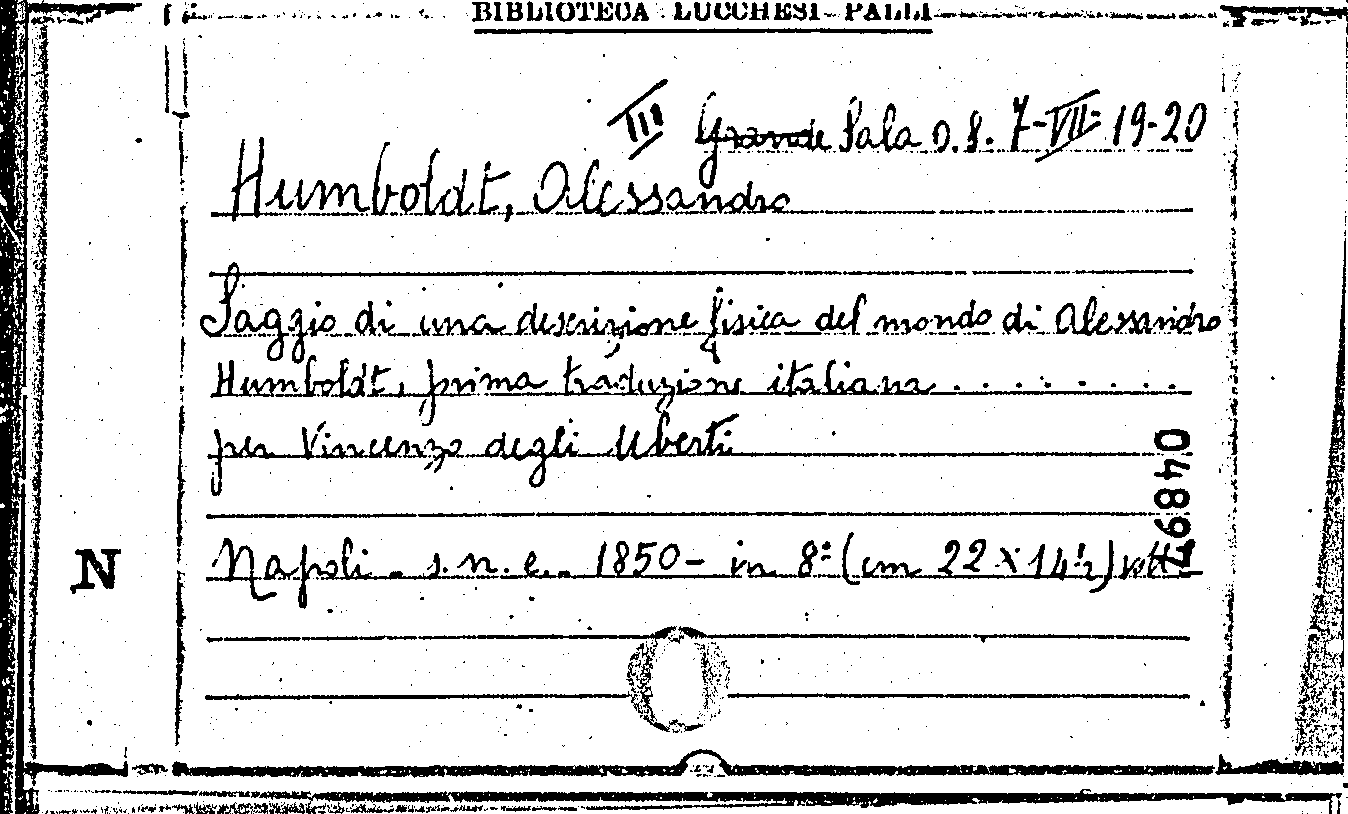 BIBLIOTECA LUCCHESI PALLI
III Grande Sala D.S. 7-VII-19-20
Humboldt, Alessandro
Saggio di una descrizione fisica del mondo di Alessandro
Humboldt, prima traduzione italiana . . . . . . . .
per Vincenzo degli Uberti
04897
N
Napoli - s.n.e.- 1850- in 8º (cm 22 x 14½)